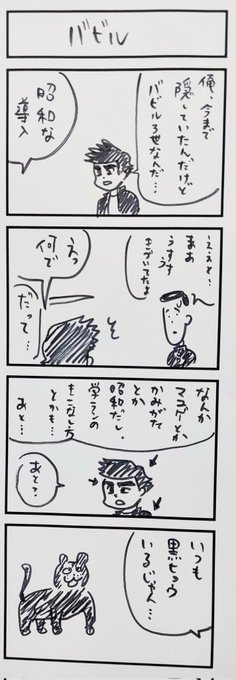 バビル
俺、今まで
隠していたんだけど
バビル3世なんだ…
昭和な
導入
ええと…
まあ
うすうす
きづいてたよ
えっ
何で
だって…
なんか
マユゲとか
かみがた
とか
昭和だし、
学ランの
きこなし方
とかも…
あと…
あと?
いつも
黒ヒョウ
いるじゃん…